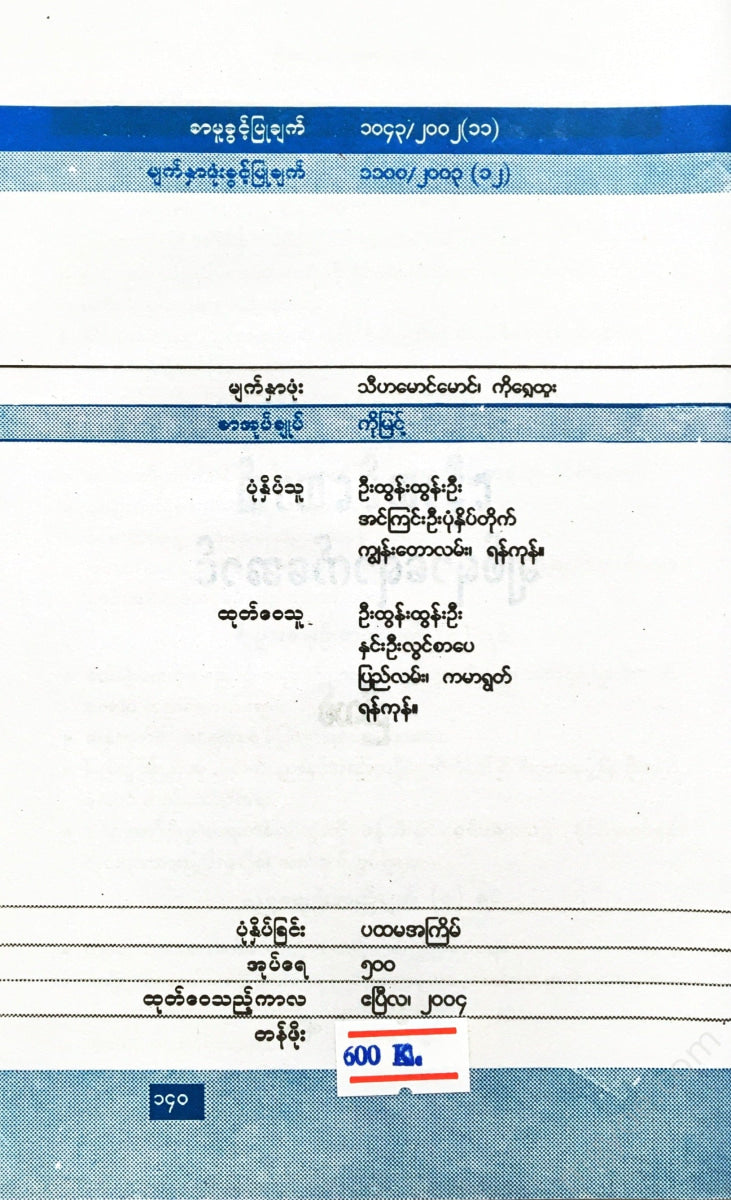 စာမူခွင့်ပြုချက် ၁၀၄၃/၂၀၀၂(၁၁)
မျက်နှာဖုံးခွင့်ပြုချက် ၁၁၀၀/၂၀၀၃ (၁၂)
မျက်နှာဖုံး သီဟမောင်မောင်၊ ကိုရွှေထူး
စာအုပ်ချုပ် ကိုမြင့်
ပုံနှိပ်သူ ဦးထွန်းထွန်းဦး
အင်ကြင်းဦးပုံနှိပ်တိုက်
ကျွန်းတောလမ်း၊ ရန်ကုန်။
ထုတ်ဝေသူ ဦးထွန်းထွန်းဦး
နှင်းဦးလွင်စာပေ
ပြည်လမ်း၊ ကမာရွတ်
ရန်ကုန်။
ပုံနှိပ်ခြင်း ပထမအကြိမ်
အုပ်ရေ ၅၀၀
ထုတ်ဝေသည့်ကာလ ဧပြီလ၊ ၂၀၀၄
တန်ဖိုး 600 Kl.
၁၄၀